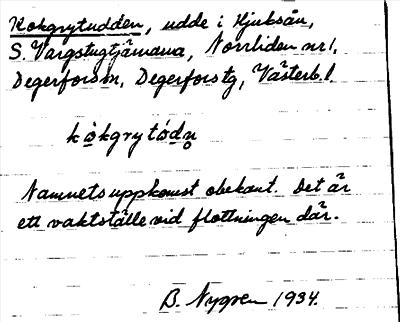 Kokgrytudden, udde i Hjuksån,
S. Vargstugtjärnarna, Norrliden nr 1,
Degerfors sn, Degerfors tg, Västerb. l.
kòkgrytódn̥
Namnets uppkomst obekant. Det är
ett vaktställe vid flottningen där.
B. Nygren 1934.